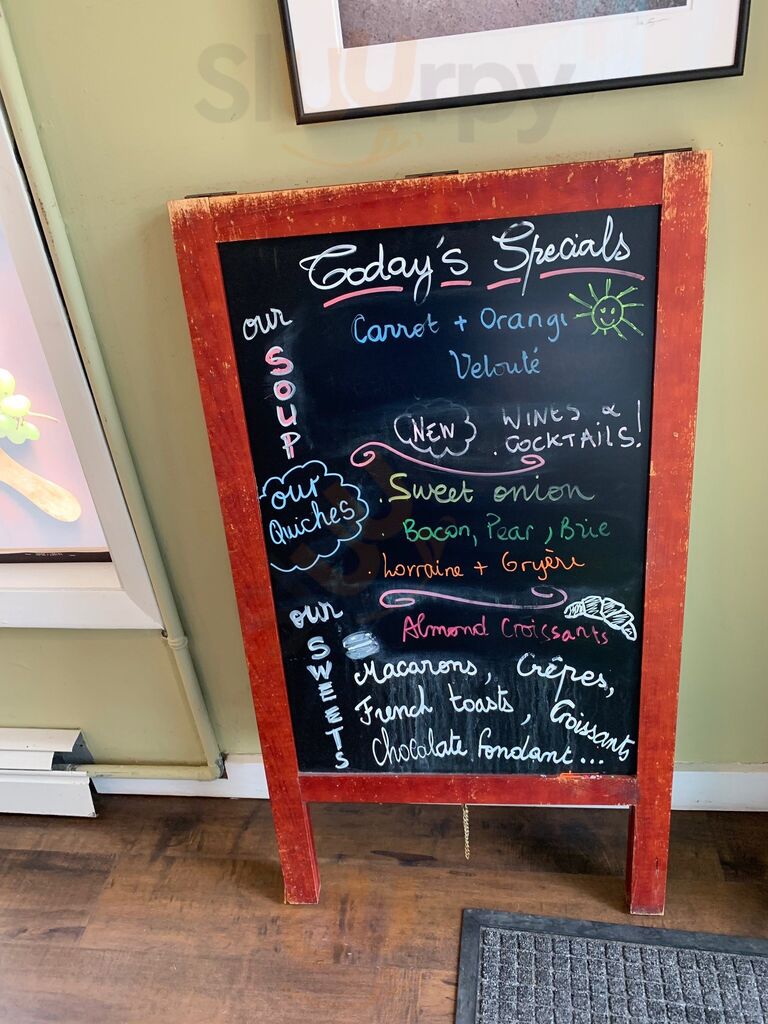 Sluurpy
Today's Specials
our
SOUP
Carrot + Orange
Velouté
NEW
WINES &
. COCKTAILS!
our
Quiches
. Sweet onion
. Bacon, Pear, Brie
. Lorraine + Gryère
our
SWEETS
Almond Croissants
Macarons, Crêpes,
French toasts, Croissants
Chocolate fondant...